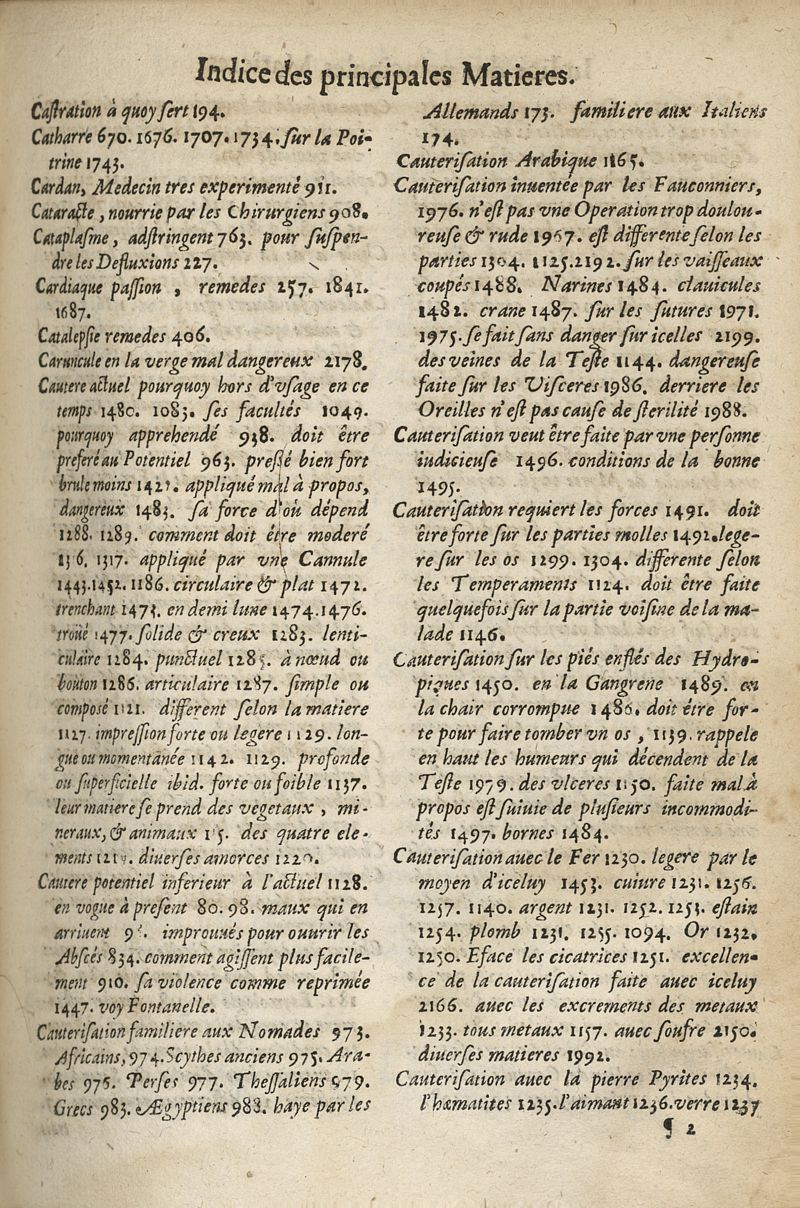 Indice des principales Matieres.
Caſtration à quoy ſert 194.
Catharre 670. 1676. 1707. 1734. ſur la Poi-
trine 1743.
Cardan, Medecin tres experimenté 911.
Cataracte, nourrie par les Chirurgiens 908.
Cataplaſme, adſtringent 763. pour ſuſpen-
dre les Defluxions 227.
Cardiaque paſſion, remedes 257. 1841.
1687.
Catalepſie remedes 406.
Caruncule en la verge mal dangereux 2178.
Cautere actuel pourquoy hors d'vſage en ce
temps 1480. 1083. ſes facultés 1049.
pourquoy apprehendé 938. doit être
preferé au Potentiel 963. preßé bien fort
brule moins appliqué mal à propos,
dangereux 1483. ſa force d'où dépend
1288. 1289. comment doit étre moderé
1317. appliqué par vne Cannule
1443. 1452. 1186. circulaire & plat 1472.
trenchant 1473. en demi lune 1474. 1476.
troüé 1477. ſolide & creux 1283. lenti-
culaire 1284. punctuel à nœud ou
bouton 1286. articulaire 1287. ſimple ou
compoſé different ſelon la matiere
1127. impreſſion forte ou legere 1129. lon-
gue ou momentânée 1142. 1129. profonde
ou ſuperficielle ibid. forte ou foible 1137.
leur matiere ſe prend des vegetaux, mi-
neraux, & animaux des quatre ele-
ments diuerſes amorces 1220.
Cautere potentiel inferieur à l'actuel 1128.
en vogue à preſent 80. 98. maux qui en
arriuent improuués pour ouurir les
Abſcés 834. comment agiſſent plus facile-
ment 910. ſa violence comme reprimée
1447. voy Fontanelle.
Cauteriſation familiere aux Nomades 973.
Africains, 974. Scythes anciens 975. Ara-
bes 976. Perſes 977. Theſſaliens 979.
Grecs 983. Ægyptiens 988. haye par les
Allemands 173. familiere aux Italiens
174.
Cauteriſation Arabique 1165.
Cauteriſation inuentée par les Fauconniers,
1976. n'eſt pas vne Operation trop doulou-
reuſe & rude 1967. eſt differente ſelon les
parties 1304. 1125. 2192. ſur les vaiſſeaux
coupés 1488. Narines 1484. clauicules
1482. crane 1487. ſur les ſutures 1971.
1975. ſe fait ſans danger ſur icelles 2199.
des veines de la Teſte 1144. dangereuſe
faite ſur les Viſceres 1986. derriere les
Oreilles n'eſt pas cauſe de ſterilité 1988.
Cauteriſation veut être faite par vne perſonne
iudicieuſe 1496. conditions de la bonne
1495.
Cauteriſation requiert les forces 1491. doit
être forte ſur les parties molles 1492. lege-
re ſur les os 1299. 1304. differente ſelon
les Temperaments 1124. doit être faite
quelquefois ſur la partie voiſine de la ma-
lade 1146.
Cauteriſation ſur les piés enflés des Hydro-
piques 1450. en la Gangrene 1489. en
la chair corrompue 1486. doit étre for-
te pour faire tomber vn os, 1139. rappele
en haut les humeurs qui décendent de la
Teſte 1979. des vlceres 1150. faite mal à
propos eſt ſuiuie de pluſieurs incommodi-
tés 1497. bornes 1484.
Cauteriſation auec le Fer 1230. legere par le
moyen d'iceluy 1453. cuiure 1231. 1256.
1257. 1140. argent 1231. 1252. 1253. eſtain
1254. plomb 1231. 1255. 1094. Or 1232.
1250. Eface les cicatrices 1251. excellen-
ce de la cauteriſation faite auec iceluy
2166. auec les excrements des metaux
1233. tous metaux 1157. auec ſoufre 2150.
diuerſes matieres 1992.
Cauteriſation auec la pierre Pyrites 1234.
l'hæmatites 1235. l'aimant 1236. verre 1237
¶ 2